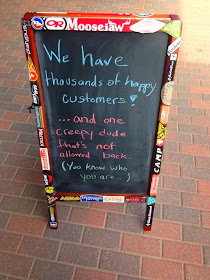 OR Moosejaw
We have
thousands of happy
customers!
...and one
creepy dude
that's not
allowed back.
(You know who
you are...)
CAMP